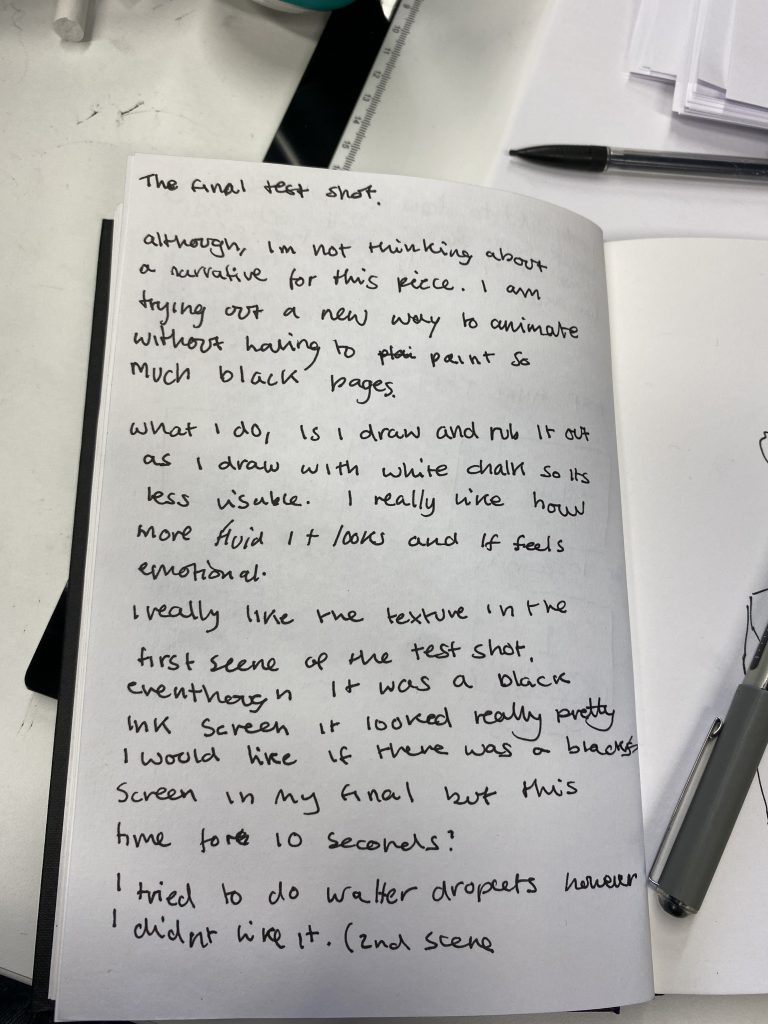 The final test shot.
although, Im not thinking about
a narrative for this piece. I am
trying out a new way to animate
without having to plai paint so
much black pages.
what I do, is I draw and rub it out
as I draw with white chalk so its
less visable. I really like how
more fluid it looks and it feels
emotional.
I really like the texture in the
first scene of the test shot.
eventhough it was a black
ink screen it looked really pretty
I would like if there was a black
screen in my final but this
time for 10 seconds?
I tried to do watter droplets however
I didnt like it. (2nd scene
9
10
11
12
13
14
15